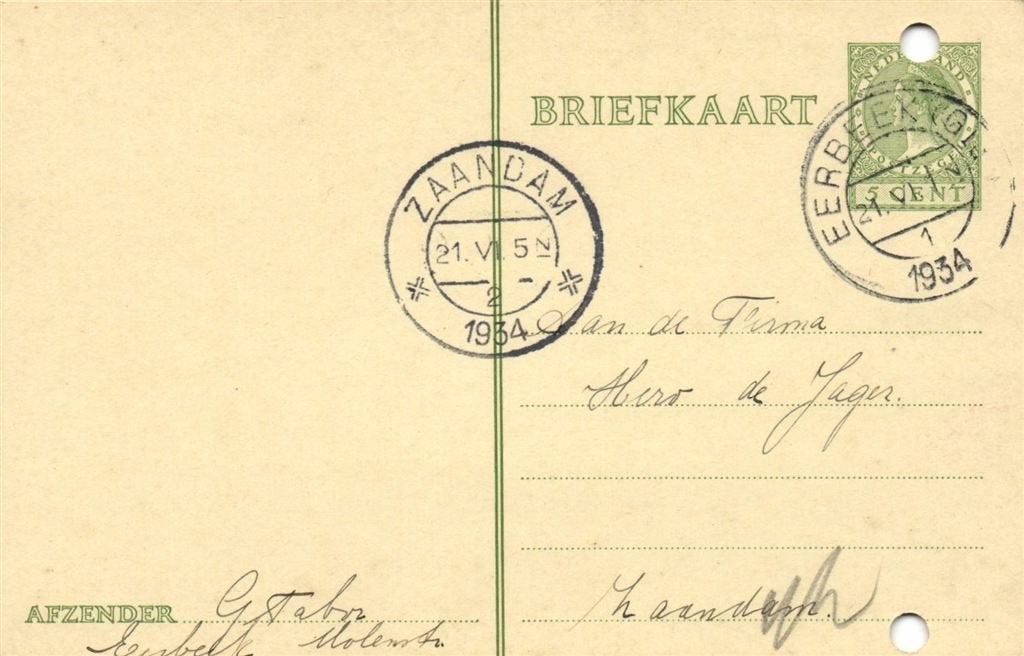 BRIEFKAART
NEDERLAND
POSTZEGEL
5 CENT
EERBEEK (GL
21. VI. 1
1
1934
ZAANDAM
21. VI. 5 N
2
1934
Aan de Firma
Hero de Jager.
Zaandam.
AFZENDER G Tabor
Eerbeek Molenstr.